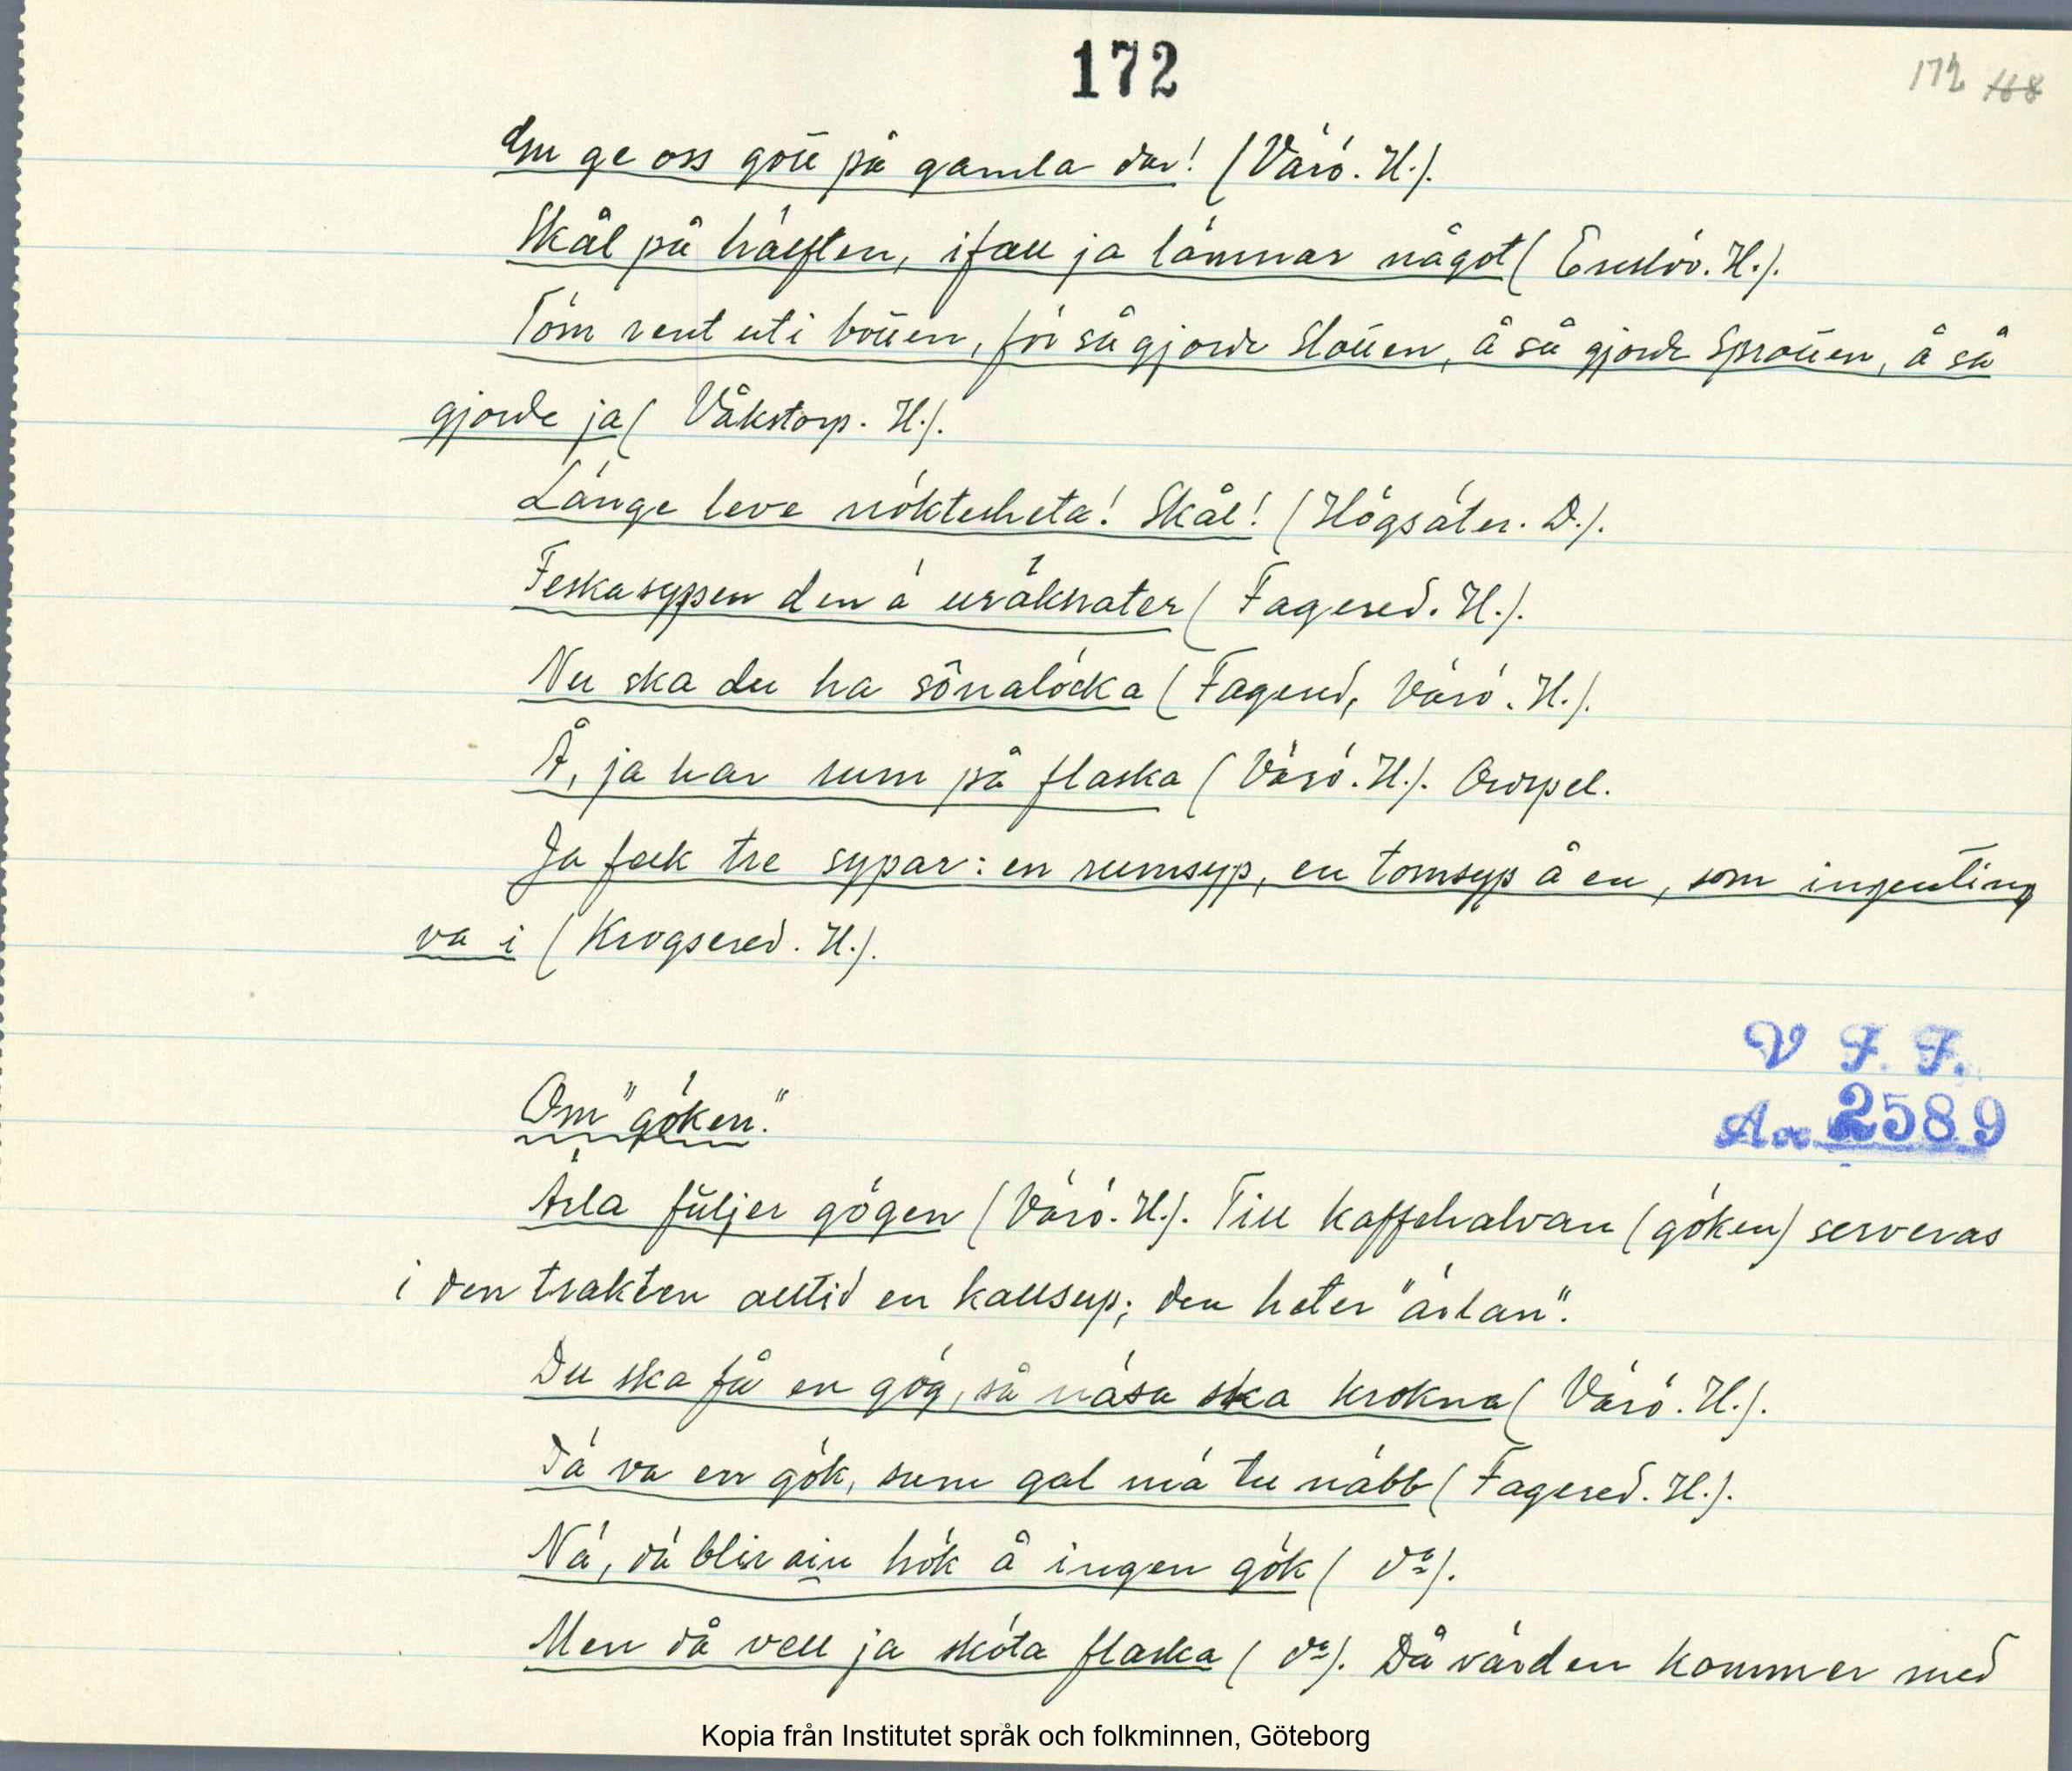 172
172 168
den ge oss gött på gamla dar! (Värö. H.).
Skål på hälften, ifall ja lämnar något (Eneslöv. H.).
Töm rent uti bötten, för så gjorde Slötten, å så gjorde Sprötten, å så
gjorde ja (Våkstorp. H.).
Länge leve nökterheta! Skål! (Högsäter. D.).
Feskasypen den ä uräknater (Fagered. H.).
Nu ska du ha sônalöcka (Fagered, Värö. H.).
Å, ja har rum på flaska (Värö. H.). Ordspel.
Ja fick tre sypar: en rumsyp, en tomsyp å en, som ingenting
va i (Krogsered. H.).
V F. F.
Acc 2589
Om "göken".
Ärla füljer gögen (Värö. H.). Till kaffehalvan (göken) serveras
i den trakten alltid en kallsup; den heter "ärlan".
Du ska få en gög, så näsa ska krokna (Värö. H.).
Dä va en gök, sum gol mä tu näbb (Fagered. H.).
Nä, dä blir ain hök å ingen gök (do).
Men då vell ja sköta flaska (do). Då värden kommer med
Kopia från Institutet språk och folkminnen, Göteborg